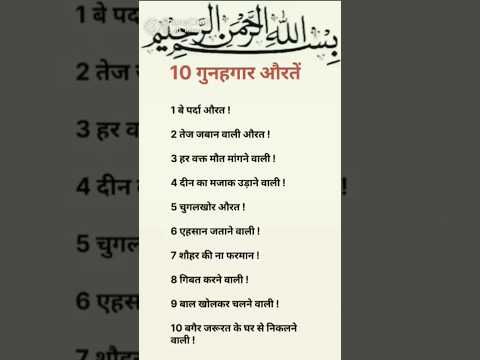 بسم الله الرحمن الرحيم
10 गुनहगार औरतें
1 बे पर्दा औरत !
2 तेज जबान वाली औरत !
3 हर वक्त मौत मांगने वाली !
4 दीन का मजाक उड़ाने वाली !
5 चुगलखोर औरत !
6 एहसान जताने वाली !
7 शौहर की ना फरमान !
8 गिबत करने वाली !
9 बाल खोलकर चलने वाली !
10 बगैर जरूरत के घर से निकलने
वाली !
1 बे पर्दा
2 तेज ज
3 हर व
4 दीन
5 चुगल
6 एहस
7 शौह